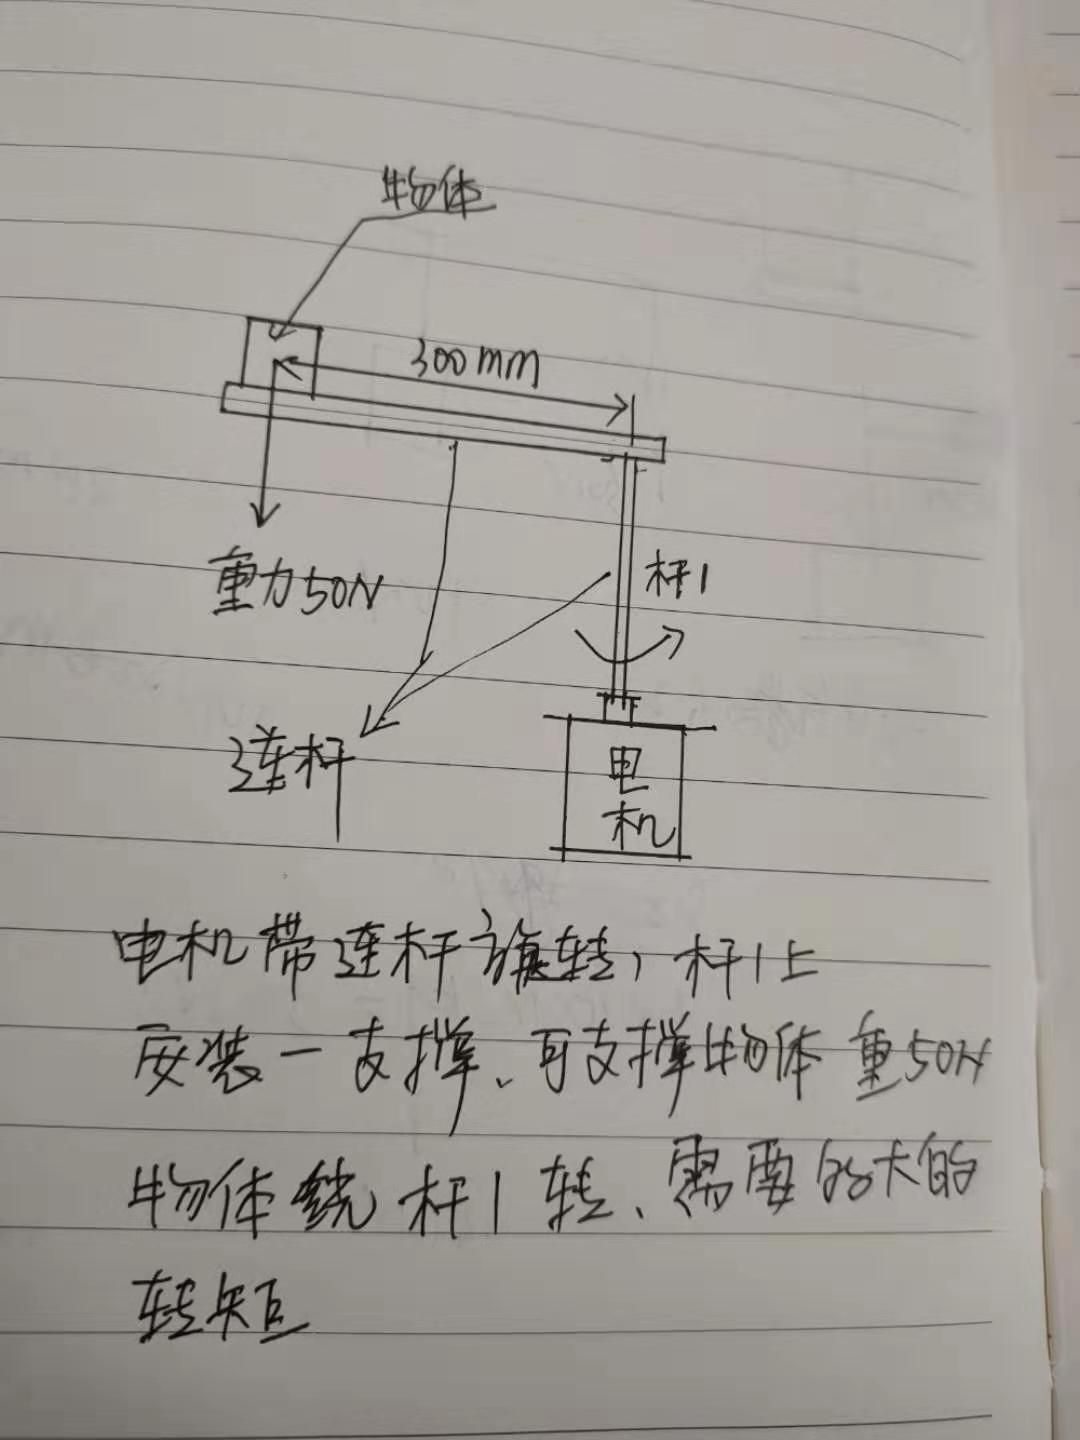 物体
300mm
重力50N
杆1
连杆
电
机
电机带连杆旋转，杆1上
安装一支撑、可支撑物体重50N
物体绕杆1转、需要多大的
转矩